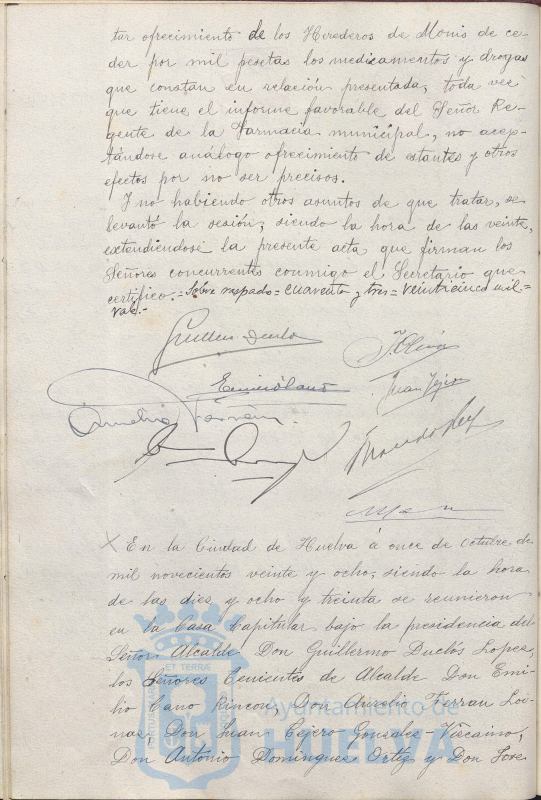 tar ofrecimiento de los Herederos de Monis de ce-
der por mil pesetas los medicamentos y drogas
que constan en relación presentada, toda vez
que tiene el informe favorable del Señor Re-
gente de la Farmacia municipal, no acep-
tándose análogo ofrecimiento de estantes y otros
efectos por no ser precisos.
Y no habiendo otros asuntos de que tratar, se
levantó la sesión, siendo la hora de las veinte,
extendiendose la presente acta que firman los
Señores concurrentes conmigo el Secretario que
certifico.- Sobre raspado = cuarenta y tres = veinticinco mil =
vale.-
Juan Tejero
En la Ciudad de Huelva á once de Octubre de
mil novecientos veinte y ocho, siendo la hora
de las dies y ocho y treinta se reunieron
en la Casa Capitular bajo la presidencia del
Señor Alcalde Don Guillermo Duclós Lopez,
los Señores Tenientes de Alcalde Don Emi-
lio Cano Rincon, Don Aurelio
Don Juan Tejero Gonzalez-Viscaino,
Don Antonio Dominguez Ortiz y Don José
ET TERRÆ
Ayuntamiento de
HUELVA